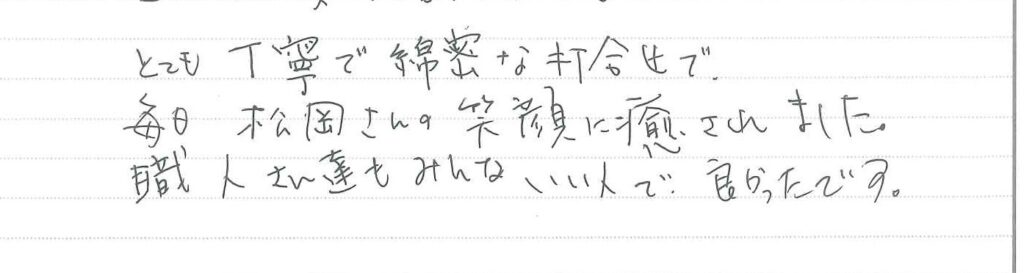 とても 丁寧で 綿密な打合せで、
毎日 松岡さんの 笑顔に癒されました。
職人さん達もみんな いい人で 良かったです。